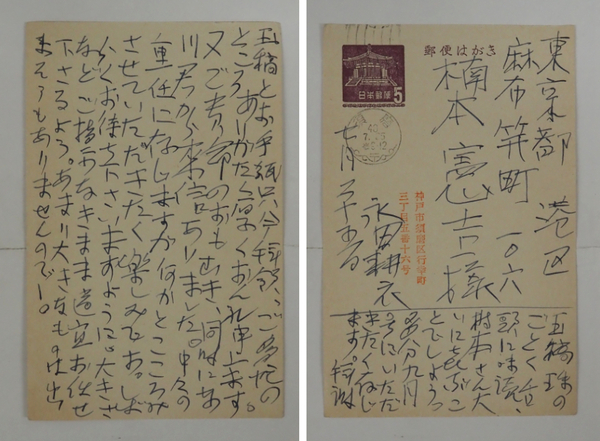 玉稿とお手紙只今拝領、ご多忙の
ところありがたく厚くおん礼申上ます。
又ご寿命のおもむき、同時にあ
川君から来信ありました。中々の
重任に存じますが何かとこころみ
させていただきたく楽しみであっしば
らくお待ち下さいますように。大きさ
などご指示なきまま適宜お任せ
下さるよう。あまり大きなものは出
来そうもありませんので─。
郵便はがき
日本郵便
5
40
東京都 港区
麻布笄町一〇六
楠本憲吉様
七月二十五日
神戸市須磨区行幸町
三丁目五番十六号
永田耕衣
玉稿珠の
ごとく
頭に味読、
楠本さん大
いに喜ぶこ
とでしょう
多分九月
号にいただ
きたく存じ
ます。拝謝